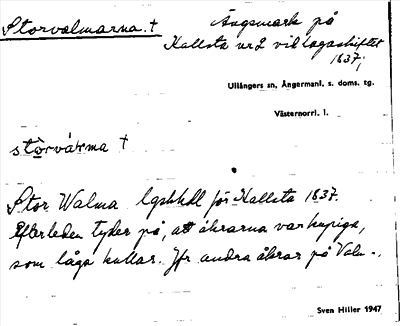 Storvalmarna. †
Ängsmark på
Kallsta nr 2 vid lagaskiftet
1837;
Ullångers sn, Ångermanl. s. doms. tg.
Västernorrl. l.
stòrvárma †
Stor Walma lgskhdl för Kallsta 1837.
Efterleden tyder på, att åkrarna var kupiga,
som låga kullar. Jfr andra åkrar på Valm-.
Sven Hiller 1947